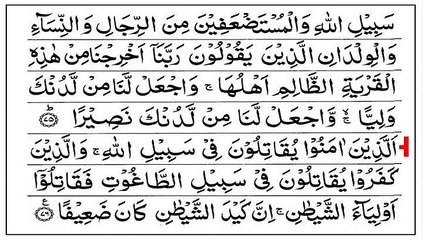 سَبِيْلِ اللّٰهِ وَالْمُسْتَضْعَفِيْنَ مِنَ الرِّجَالِ وَالنِّسَآءِ
وَالْوِلْدَانِ الَّذِيْنَ يَقُوْلُوْنَ رَبَّنَآ اَخْرِجْنَا مِنْ هٰذِهِ
الْقَرْيَةِ الظَّالِمِ اَهْلُهَا ۚ وَاجْعَلْ لَّنَا مِنْ لَّدُنْكَ
وَلِيًّا ۙ وَّاجْعَلْ لَّنَا مِنْ لَّدُنْكَ نَصِيْرًا ؕ ﴿۷۵﴾
اَلَّذِيْنَ اٰمَنُوْا يُقَاتِلُوْنَ فِيْ سَبِيْلِ اللّٰهِ ۚ وَالَّذِيْنَ
كَفَرُوْا يُقَاتِلُوْنَ فِيْ سَبِيْلِ الطَّاغُوْتِ فَقَاتِلُوْٓا
اَوْلِيَآءَ الشَّيْطٰنِ ۚ اِنَّ كَيْدَ الشَّيْطٰنِ كَانَ ضَعِيْفًا ﴿۷۶﴾ ع